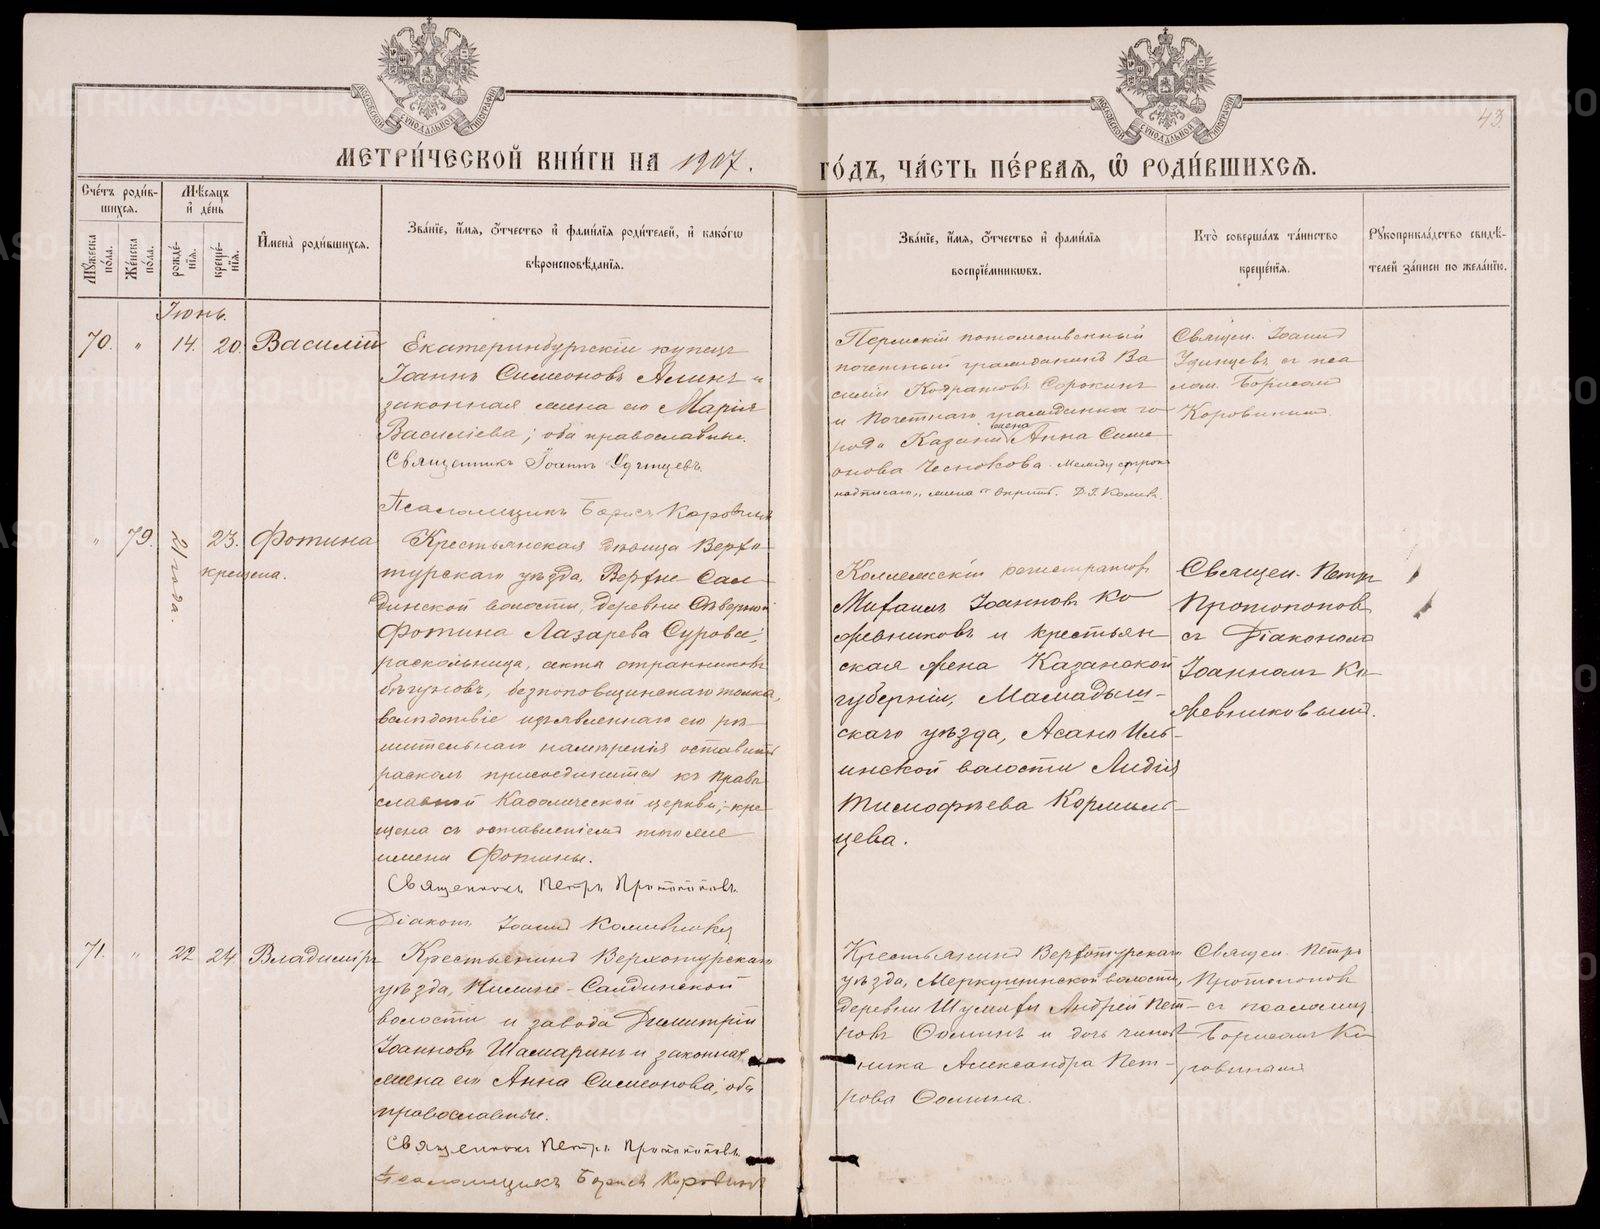 МЕТРИ́ЧЕСКОЙ КНИ́ГИ НА 1907.
ГО́ДЪ, ЧА́СТЬ ПЕ́РВАЯ, Ѿ РОДИ́ВШИХСЯ.
43.
Сче́тъ роди́в-
шихся.
Мѣ́сяцъ
и҆ де́нь
Мꙋ́жеска
по́ла.
Же́нска
по́ла.
рожде́-
нїя.
креще́-
нїя.
И҆мена̀ роди́вшихся.
Зва́нїе, и҆́мя, ѻ҆́тчество и҆ фамѝлїя роди́телей, и҆ како́гѡ
вѣроисповѣ́данїя.
Зва́нїе, и҆́мя, ѻ҆́тчество и҆ фамѝлїя
воспрїе́мникѡвъ.
Кто̀ соверша́лъ та́инство
креще́нїя.
Рꙋкоприкла́дство свидѣ́-
телей за́писи по жела́нїю.
Іюнь.
70. " 14. 20. Василій
Екатеринбургскій купецъ
Іоаннъ Симеоновъ Алинъ и
законная жена его Марія
Василіева; оба православные.
Священникъ Іоаннъ Удинцевъ.
Псаломщикъ Борисъ Коровинъ
Пермскій потомственный
почетный гражданинъ Ва-
силій Кодратовъ Сорокинъ
и Почетнаго гражданина го-
жена
рода Казани Анна Симе-
онова Чеснокова. Между строкъ
надписано „жена"
Священ. Іоаннъ
Удинцевъ съ пса-
лом. Борисомъ
Коровинымъ
" 79. 21 года. 23. Фотина
крещена.
Крестьянская дѣвица Верхо-
турскаго уѣзда, Верхне-Сал-
динской волости, деревни Сѣверной
Фотина Лазарева Сурова,
раскольница, секты странниковъ
бѣгуновъ, безпоповщинскаго толка,
вслѣдствіе изъявленнаго ею рѣ-
шительнаго намѣренія оставить
расколъ присоединится къ Право-
славной Каѳолической церкви; кре-
щена съ оставленіемъ того же
имени Фотины.
Священникъ Петръ Протопоповъ.
Діаконъ Іоаннъ Кожевниковъ
Коллежскій регистраторъ
Михаилъ Іоанновъ Ко-
жевниковъ и крестьян-
ская жена Казанской
губерніи, Мамадыш-
скаго уѣзда, Асано Иль-
инской волости Лидія
Тимофѣева Кормиль-
цева.
Священ. Петръ
Протопоповъ
съ Діакономъ
Іоанномъ Ко-
жевниковымъ.
71. " 22 24. Владиміръ
Крестьянинъ Верхотурскаго
уѣзда, Нижне-Салдинской
волости и завода Димитрій
Іоанновъ Шамаринъ и законная
жена его Анна Симеонова; оба
православные.
Священникъ Петръ Протопоповъ.
Псаломщикъ Борисъ Коровинъ
Крестьянинъ Верхотурскаго
уѣзда, Меркушинской волости,
деревни Шумихи Андрей Пет-
ровъ Ѳоминъ и дочь чинов-
ника Александра Пет-
рова Ѳомина.
Священ. Петръ
Протопоповъ
съ псаломщ.
Борисомъ Ко-
ровинымъ